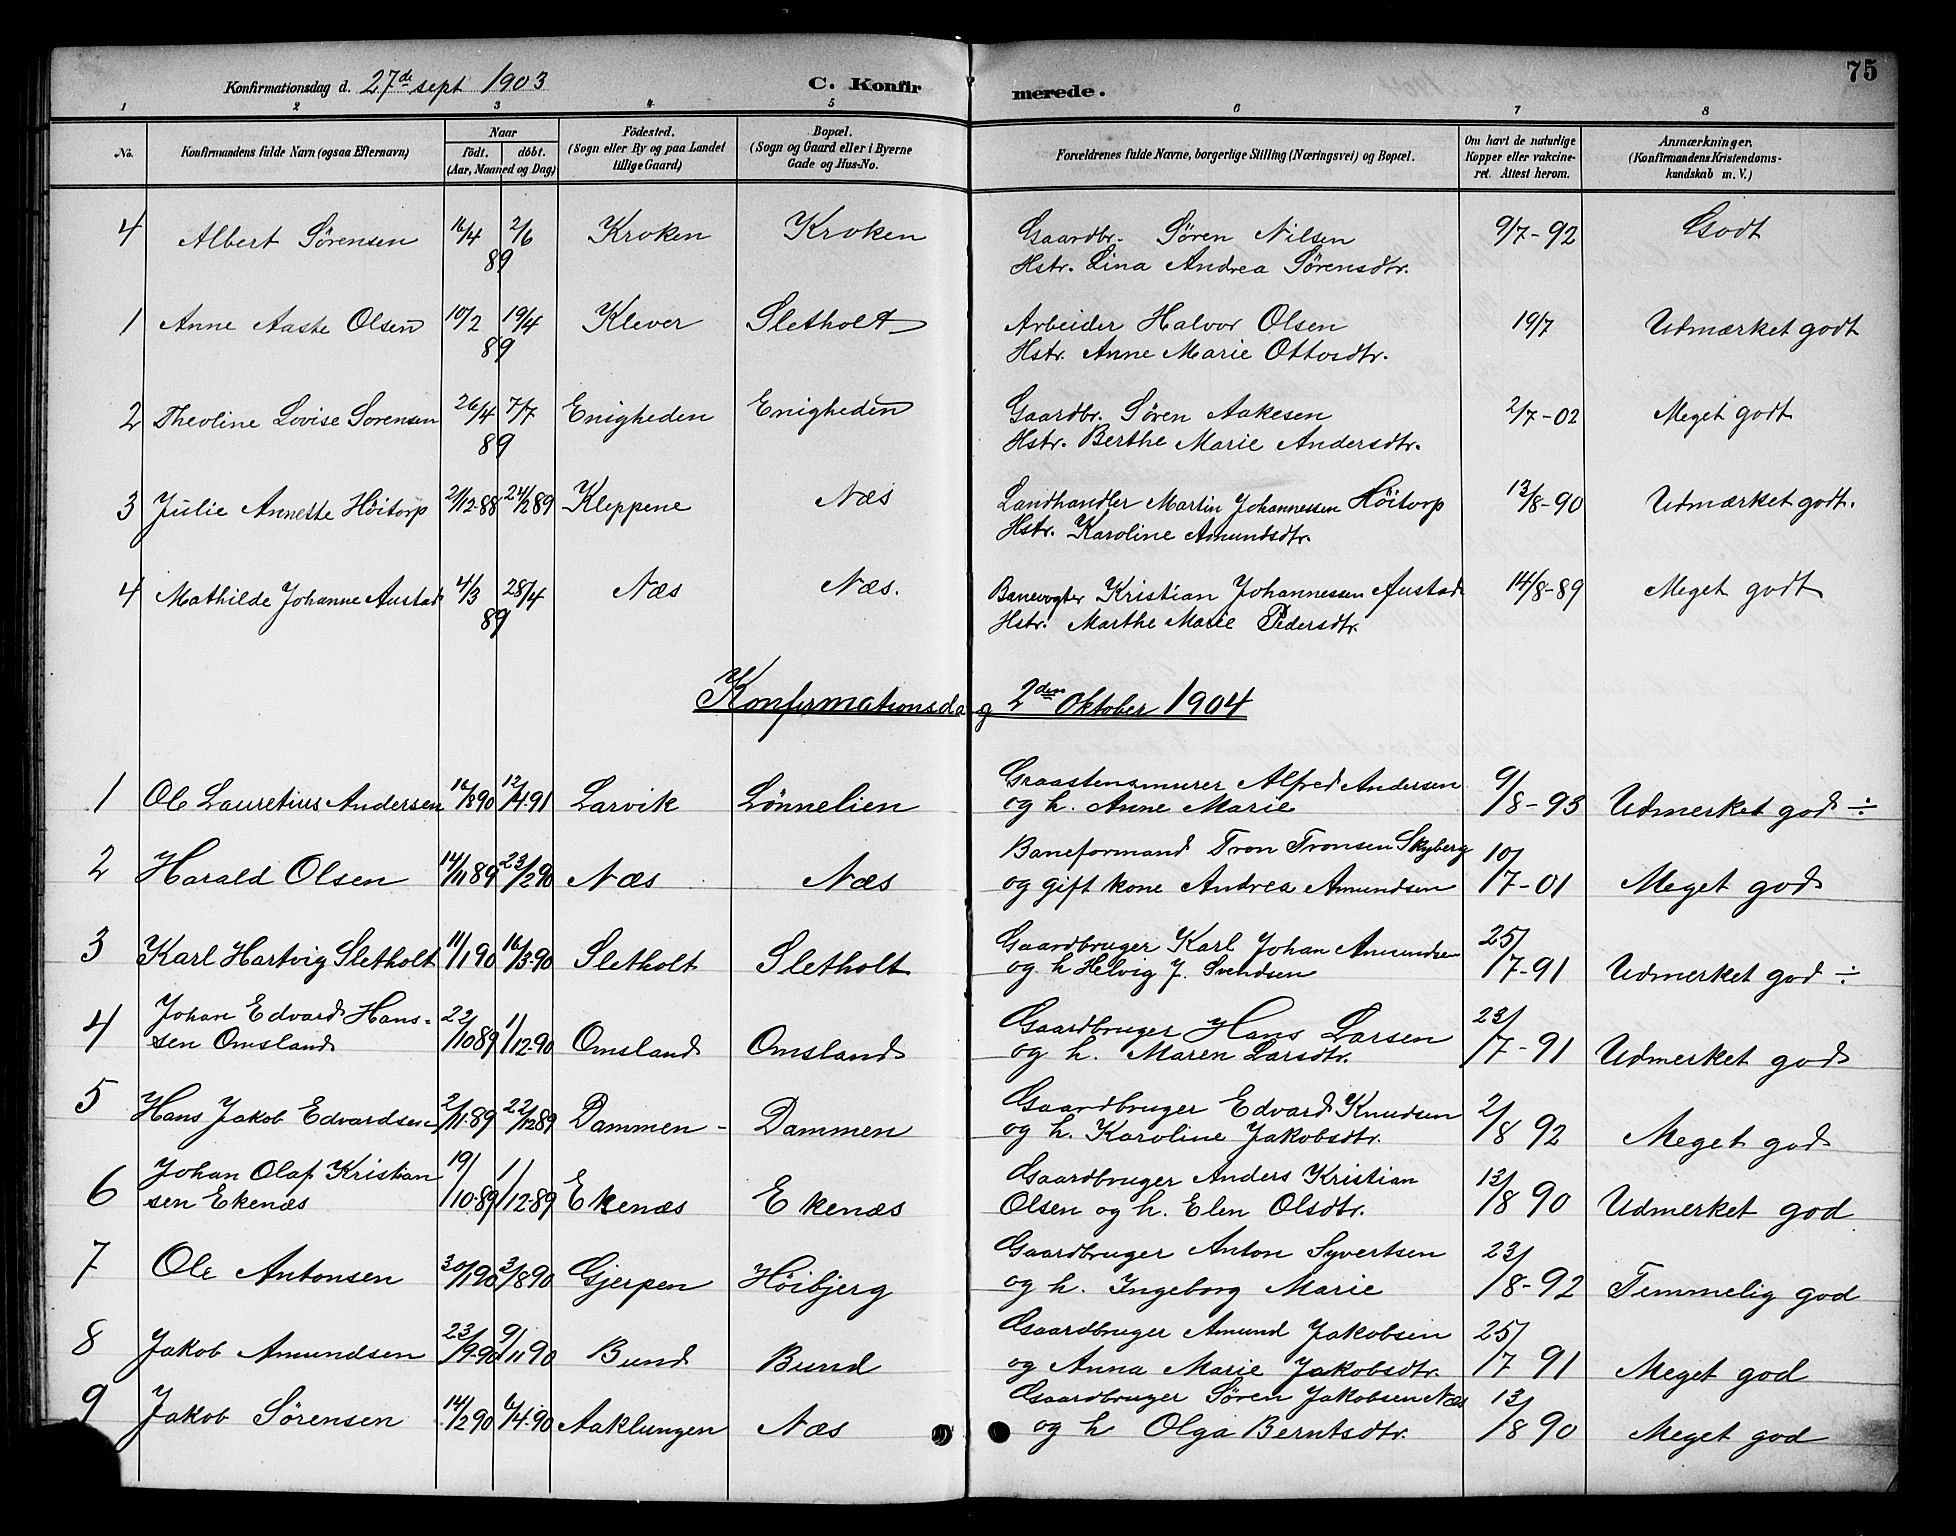 75
Konfirmationsdag d. 27de sept 1903 C. Konfirmerede.
1 2 3 4 5 6 7 8
No. Konfirmandens fulde Navn (ogsaa Efternavn) Naar født. døbt. (Aar, Maaned og Dag) Fødested. (Sogn eller By og paa Landet tillige Gaard) Bopæl. (Sogn og Gaard eller i Byerne Gade og Hus-No. Forældrenes fulde Navne, borgerlige Stilling (Næringsvei) og Bopæl. Om havt de naturlige Kopper eller vakcineret. Attest herom. Anmærkninger. (Konfirmandens Kristendomskundskab m. V.)
4 Albert Sörensen 16/4 2/6 89 Kroken Kroken Gaardbr. Sören Nilsen 9/7-92 Godt
Hstr. Lina Andrea Sörensdtr.
1 Anne Aaste Olsen 10/2 19/4 89 Klever Sletholt Arbeider Halvor Olsen 19/7 Udmærket godt
Hstr. Anne Marie Ottosdtr.
2 Theoline Lovise Sorensen 26/4 7/7 89 Enigheden Enigheden Gaardbr. Sören Aakesen 2/7-02 Meget godt
Hstr. Berthe Marie Andersdtr.
3 Julie Annette Höitorp 21/12-88 24/2 89 Kleppene Næs Landhandler Martin Johannessen Höitorp 13/8-90 Udmærket godt.
Hstr. Karoline Amundsdtr.
4 Mathilde Johanne Austad 4/3 28/4 89 Næs Næs. Banevogter Kristian Johannessen Austad 14/8-89 Meget godt
Hstr. Marthe Marie Pedersdtr.
Konfirmationsdag 2den Oktober 1904
1 Ole Lauretius Andersen 16/8 90 12/4 91 Larvik Lönnelien Graastensmurer Alfred Andersen 9/8-93 Udmerket god ÷
og h. Anne Marie
2 Harald Olsen 14/11 89 23/2 90 Næs Næs Baneformand Tron Tronsen Skyberg 10/7-01 Meget god
og gift kone Andrea Amundsen
3 Karl Hartvig Sletholt 11/1 90 16/3-90 Sletholt Sletholt Gaardbruger Karl Johan Amundsen 25/7-91 Udmerket god ÷
og h Helvig J. Svendsen
4 Johan Edvard Hans- 22/10 89 1/12-90 Omsland Omsland Gaardbruger Hans Larsen 23/7-91 Udmerket god
sen Omsland og h. Maren Larsdtr.
5 Hans Jakob Edvardsen 2/11-89 22/12 89 Dammen - Dammen Gaardbruger Edvard Knudsen 2/8 92 Meget god
og h. Karoline Jakobsdtr.
6 Johan Olaf Kristian 19/10-89 1/12-89 Ekenæs Ekenæs Gaardbruger Anders Kristian 13/8 90 Udmerket god
sen Ekenæs Olsen og h. Elen Olsdtr.
7 Ole Antonsen 30/1 90 3/8 90 Gjerpen Höibjerg Gaardbruger Anton Syvertsen 23/8-92 Temmelig god
og h. Ingeborg Marie
8 Jakob Amundsen 23/9-90 9/11 90 Bund Bund Gaardbruger Amund Jakobsen 25/7 91 Meget god
og Anna Marie Jakobsdtr.
9 Jakob Sörensen 14/2 90 6/4-90 Aaklungen Næs Gaardbruger Sören Jakobsen Næs 13/8 90 Meget god
og h Olga Berntsdtr.